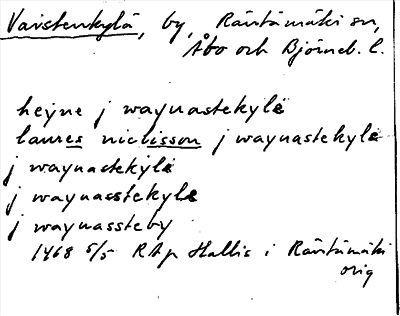 Vaistenkylä, by, Räntämäki sn,
Åbo och Björneb. l.
heyne j waynastekylë
laures niclisson j waynastekylë
j waynastekylë
j waynasstekylë
j waynassteby
1468 5/5 RAp Hallis i Räntämäki
orig